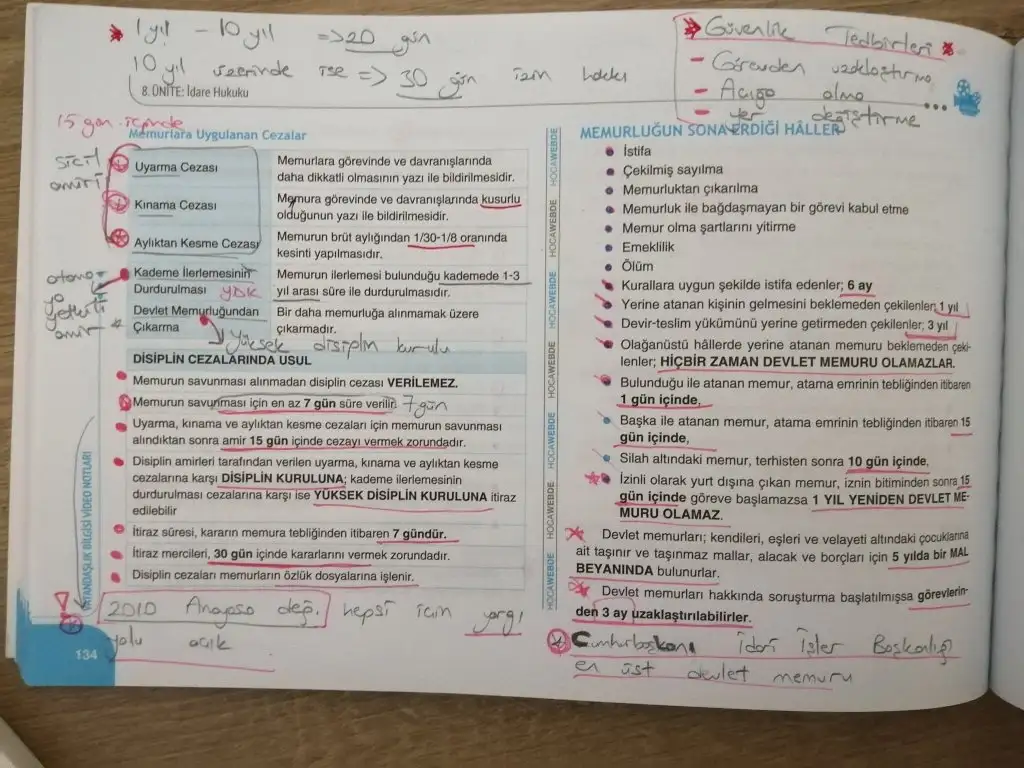 1 yıl - 10 yıl => 20 gün
10 yıl üzerinde ise => 30 gün izin hakkı
Güvenlik Tedbirleri
- Görevden uzaklaştırma
- Açığa alma
- yer değiştirme
8. ÜNİTE: İdare Hukuku
15 gün içinde
Memurlara Uygulanan Cezalar
sicil
amiri
Uyarma Cezası
Memurlara görevinde ve davranışlarında
daha dikkatli olmasının yazı ile bildirilmesidir.
Kınama Cezası
Memura görevinde ve davranışlarında kusurlu
olduğunun yazı ile bildirilmesidir.
Aylıktan Kesme Cezası
Memurun brüt aylığından 1/30-1/8 oranında
kesinti yapılmasıdır.
Kademe İlerlemesinin
Durdurulması YDK
Memurun ilerlemesi bulunduğu kademede 1-3
yıl arası süre ile durdurulmasıdır.
atamaya
yetkili
amir
Devlet Memurluğundan
Çıkarma
Bir daha memurluğa alınmamak üzere
çıkarmadır.
yüksek disiplin kurulu
DİSİPLİN CEZALARINDA USUL
Memurun savunması alınmadan disiplin cezası VERİLEMEZ.
Memurun savunması için en az 7 gün süre verilir. 7 gün
Uyarma, kınama ve aylıktan kesme cezaları için memurun savunması
alındıktan sonra amir 15 gün içinde cezayı vermek zorundadır.
Disiplin amirleri tarafından verilen uyarma, kınama ve aylıktan kesme
cezalarına karşı DİSİPLİN KURULUNA; kademe ilerlemesinin
durdurulması cezalarına karşı ise YÜKSEK DİSİPLİN KURULUNA itiraz
edilebilir
İtiraz süresi, kararın memura tebliğinden itibaren 7 gündür.
İtiraz mercileri, 30 gün içinde kararlarını vermek zorundadır.
Disiplin cezaları memurların özlük dosyalarına işlenir.
2010 Anayasa değ. hepsi için yargı
yolu açık
134
VATANDAŞLIK BİLGİSİ VİDEO NOTLARI
HOCAWEBDE HOCAWEBDE HOCAWEBDE HOCAWEBDE HOCAWEBDE HOCAWEBDE HOCAWEBDE
MEMURLUĞUN SONA ERDİĞİ HÂLLER
İstifa
Çekilmiş sayılma
Memurluktan çıkarılma
Memurluk ile bağdaşmayan bir görevi kabul etme
Memur olma şartlarını yitirme
Emeklilik
Ölüm
Kurallara uygun şekilde istifa edenler; 6 ay
Yerine atanan kişinin gelmesini beklemeden çekilenler; 1 yıl
Devir-teslim yükümünü yerine getirmeden çekilenler; 3 yıl
Olağanüstü hâllerde yerine atanan memuru beklemeden çeki-
lenler; HİÇBİR ZAMAN DEVLET MEMURU OLAMAZLAR.
Bulunduğu ile atanan memur, atama emrinin tebliğinden itibaren
1 gün içinde,
Başka ile atanan memur, atama emrinin tebliğinden itibaren 15
gün içinde,
Silah altındaki memur, terhisten sonra 10 gün içinde,
İzinli olarak yurt dışına çıkan memur, iznin bitiminden sonra 15
gün içinde göreve başlamazsa 1 YIL YENİDEN DEVLET ME-
MURU OLAMAZ.
Devlet memurları; kendileri, eşleri ve velayeti altındaki çocuklarına
ait taşınır ve taşınmaz mallar, alacak ve borçları için 5 yılda bir MAL
BEYANINDA bulunurlar.
Devlet memurları hakkında soruşturma başlatılmışsa görevlerin-
den 3 ay uzaklaştırılabilirler.
Cumhurbaşkanı İdari İşler Başkanlığı
en üst devlet memuru